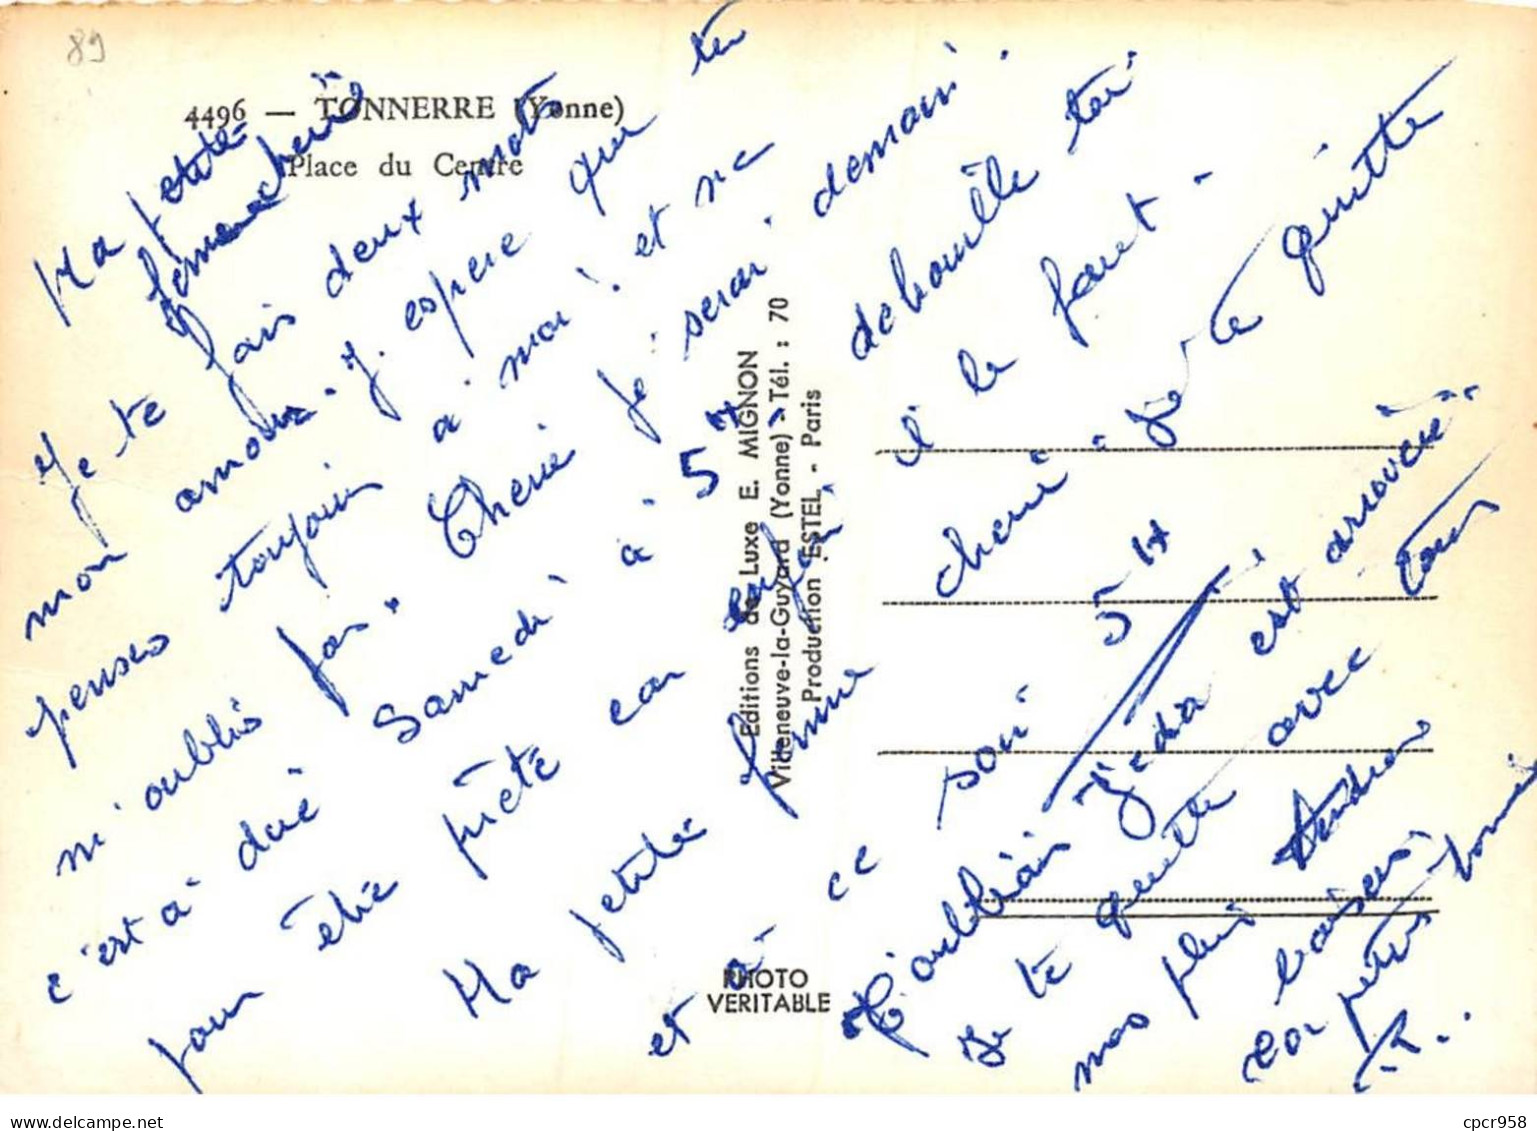 89
4496 — TONNERRE (Yonne)
Place du Centre
Ma petite
femme cherie
Je te fais deux mots
mon amour. J. espere que tu
penses toujour a' moi! et ne
m'oublis pas" Cherie je serai demain.
c'est à' dire Samedi à' 5 H
pour être prète car
Ma petite femme
et a' ce soir 5 H
debouille toi
il le faut -
cheri " Je te quitte
J'oubliais est arrivée
Je te quitte avec tous
mes plus tendres
baisers.
ton petit homme
R..
Editions de Luxe E. MIGNON
Videneuve-la-Guyard (Yonne) - Tél. : 70
Production ESTEL - Paris
PHOTO
VERITABLE
cpcr958